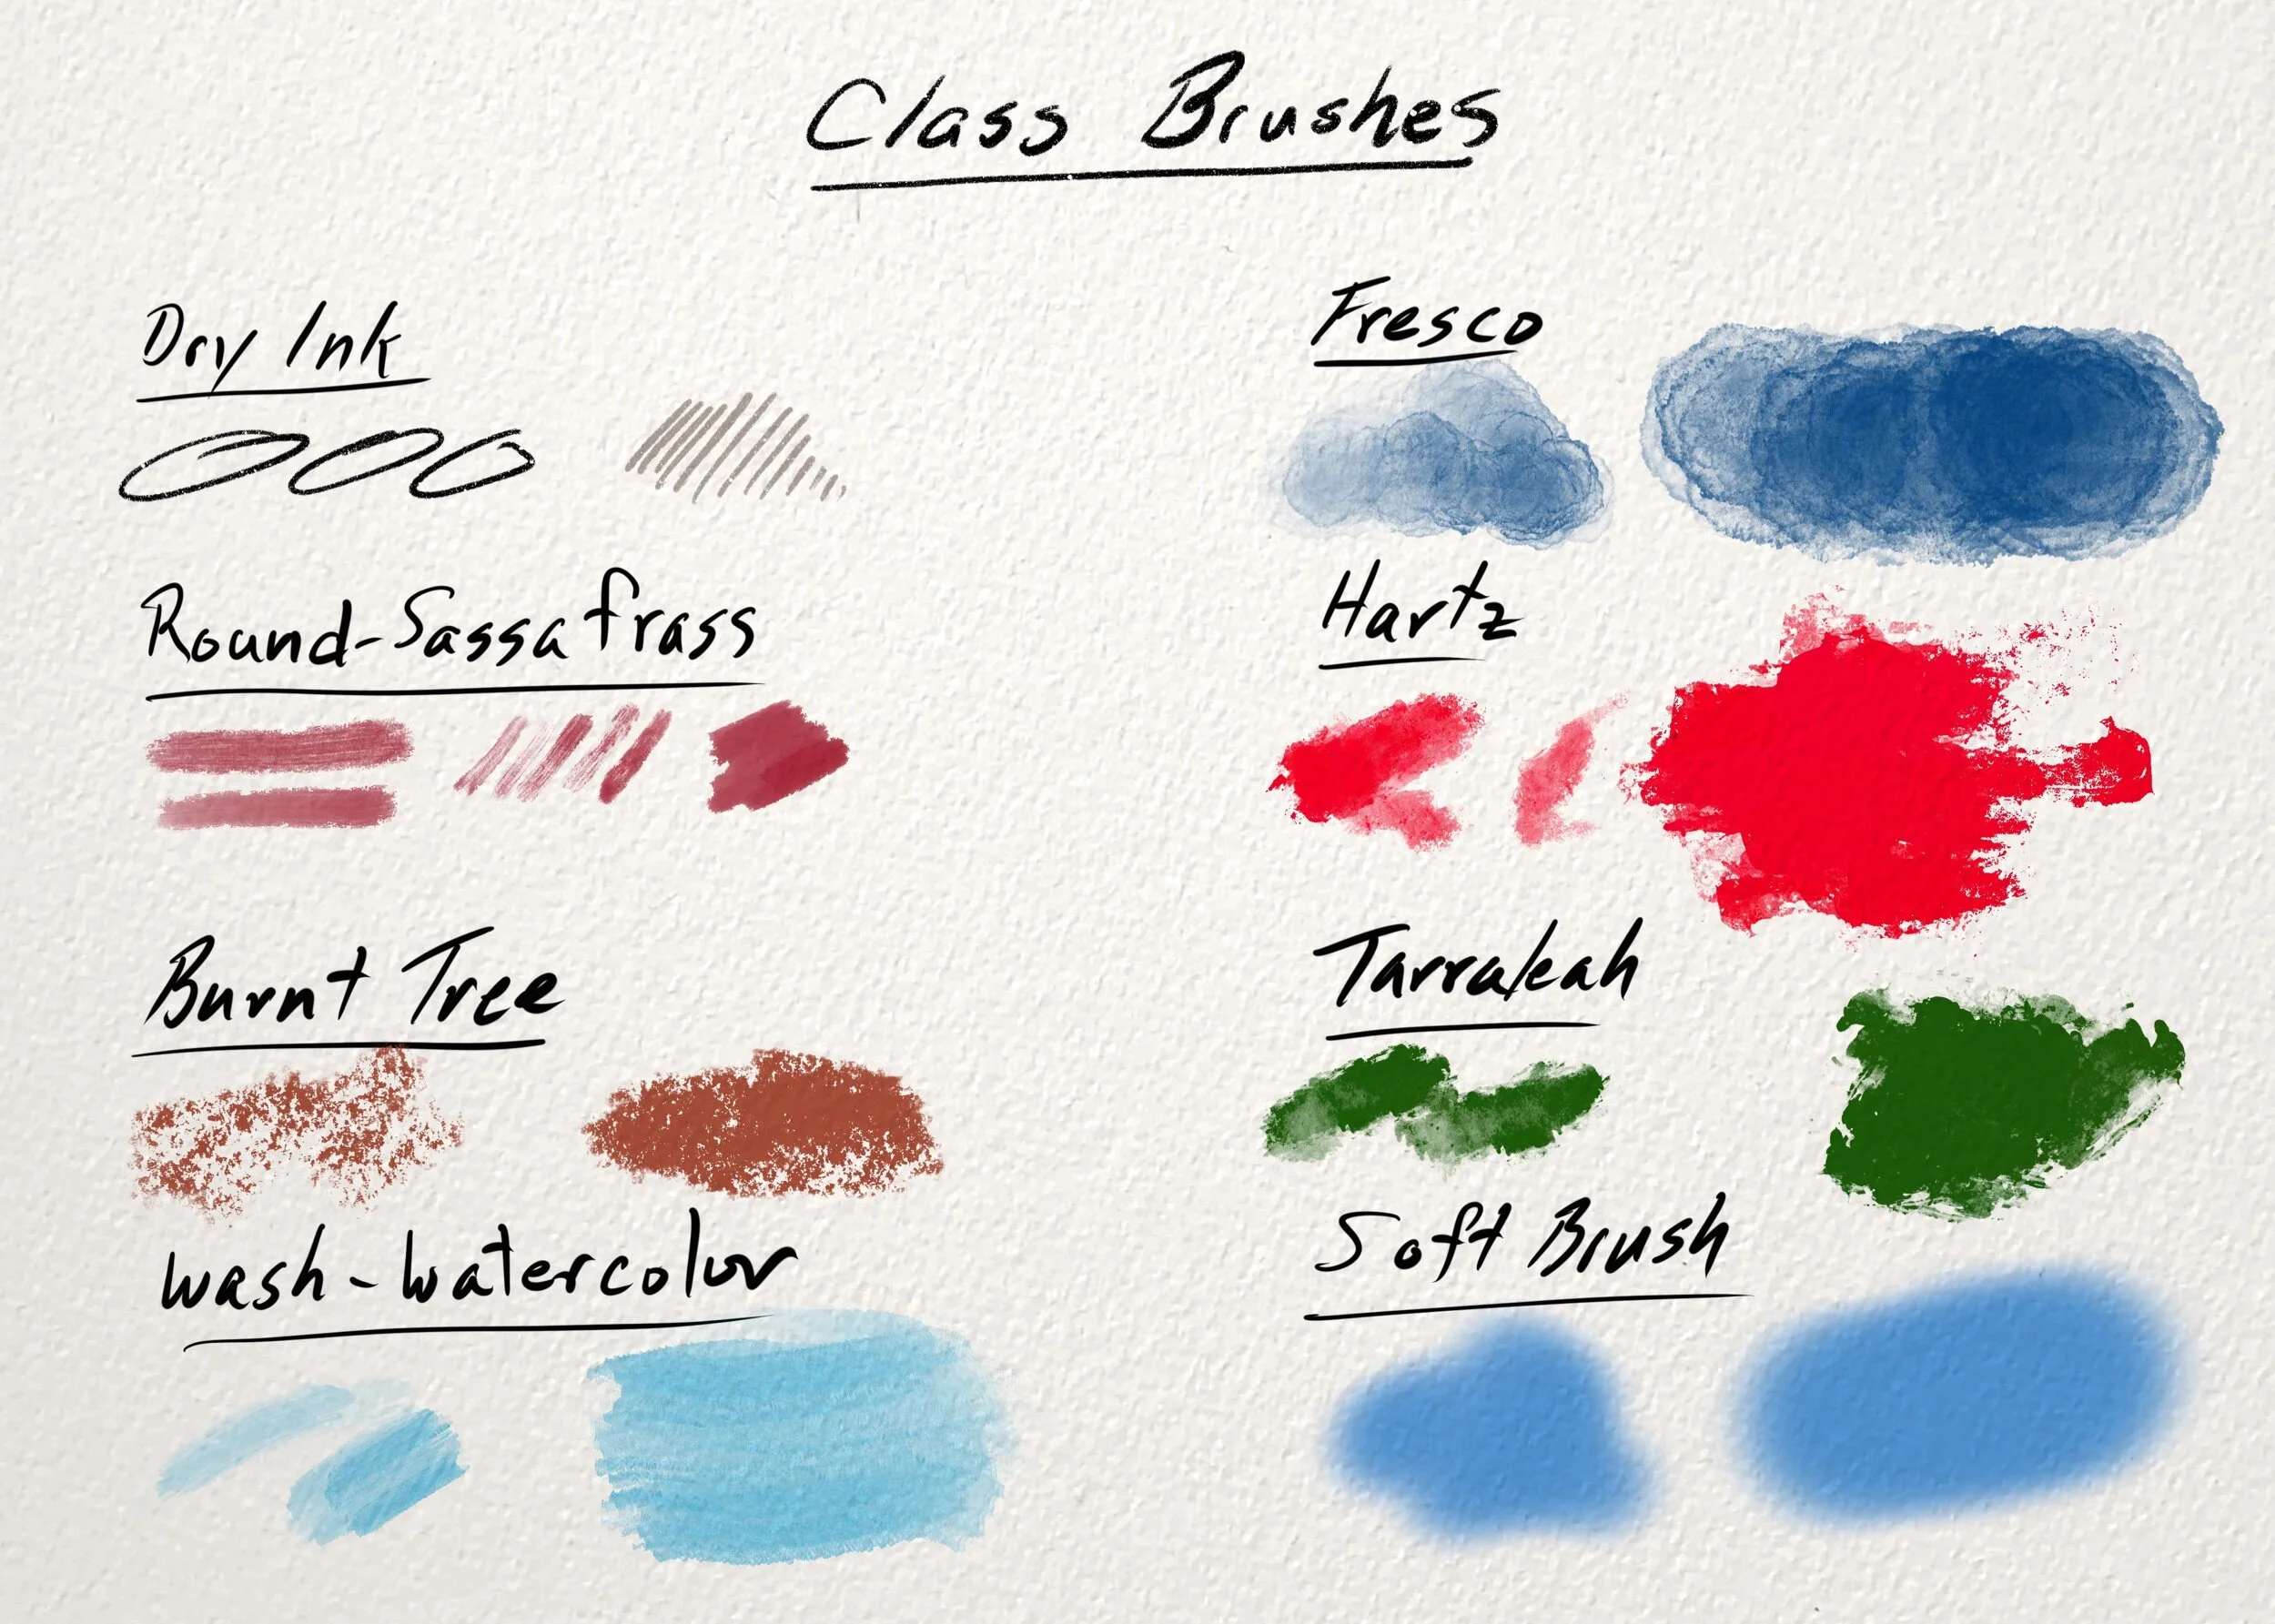 Class Brushes
Dry Ink
Round-Sassafrass
Burnt Tree
Wash-Watercolor
Fresco
Hartz
Tarraleah
Soft Brush